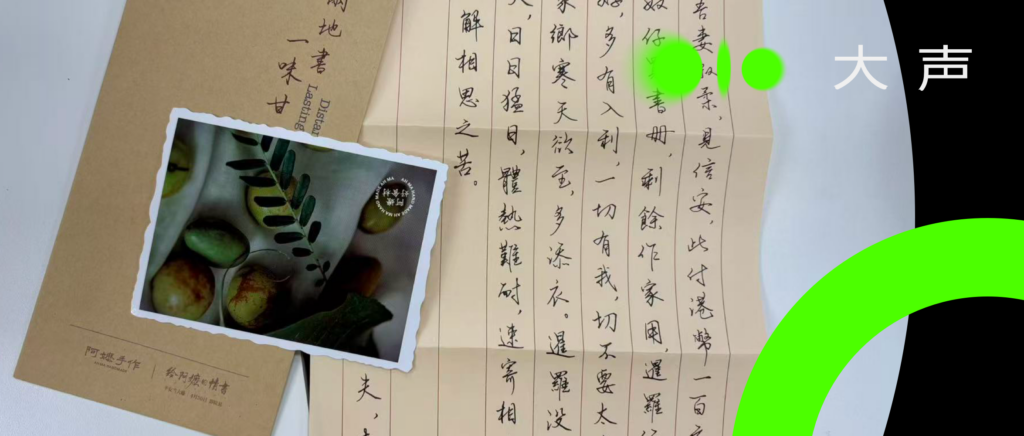 大声
吾妻淑柔,見信安,此付港幣一百
奴仔書册,剩餘作家用,暹羅
好,多有入利,一切有我,切不要太
家鄉寒天欲至,多添衣。暹羅没
天,日日猛日,體熱難耐,速寄相
解相思之苦。
夫,
地書
一味甘
Lasting
阿嬷手作
给阿嬷的情書